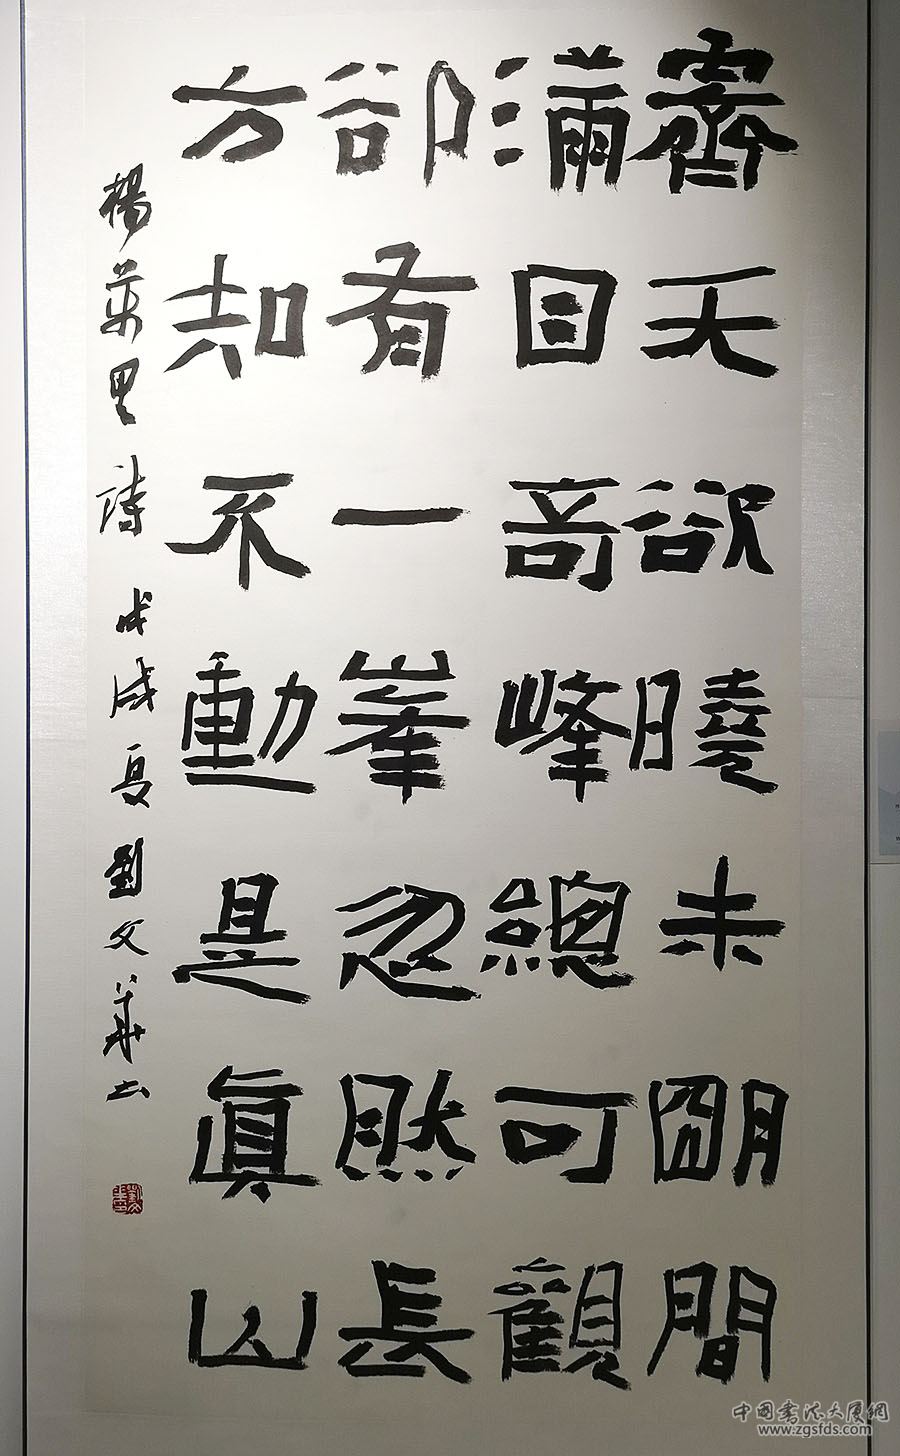 霽天欲曉未朙間
滿目奇峰總可觀
卻有一峯忽然長
方知不動是眞山
楊萬里詩 戊戌夏 劉文華书
中國書法大厦網
www.zgsfds.com